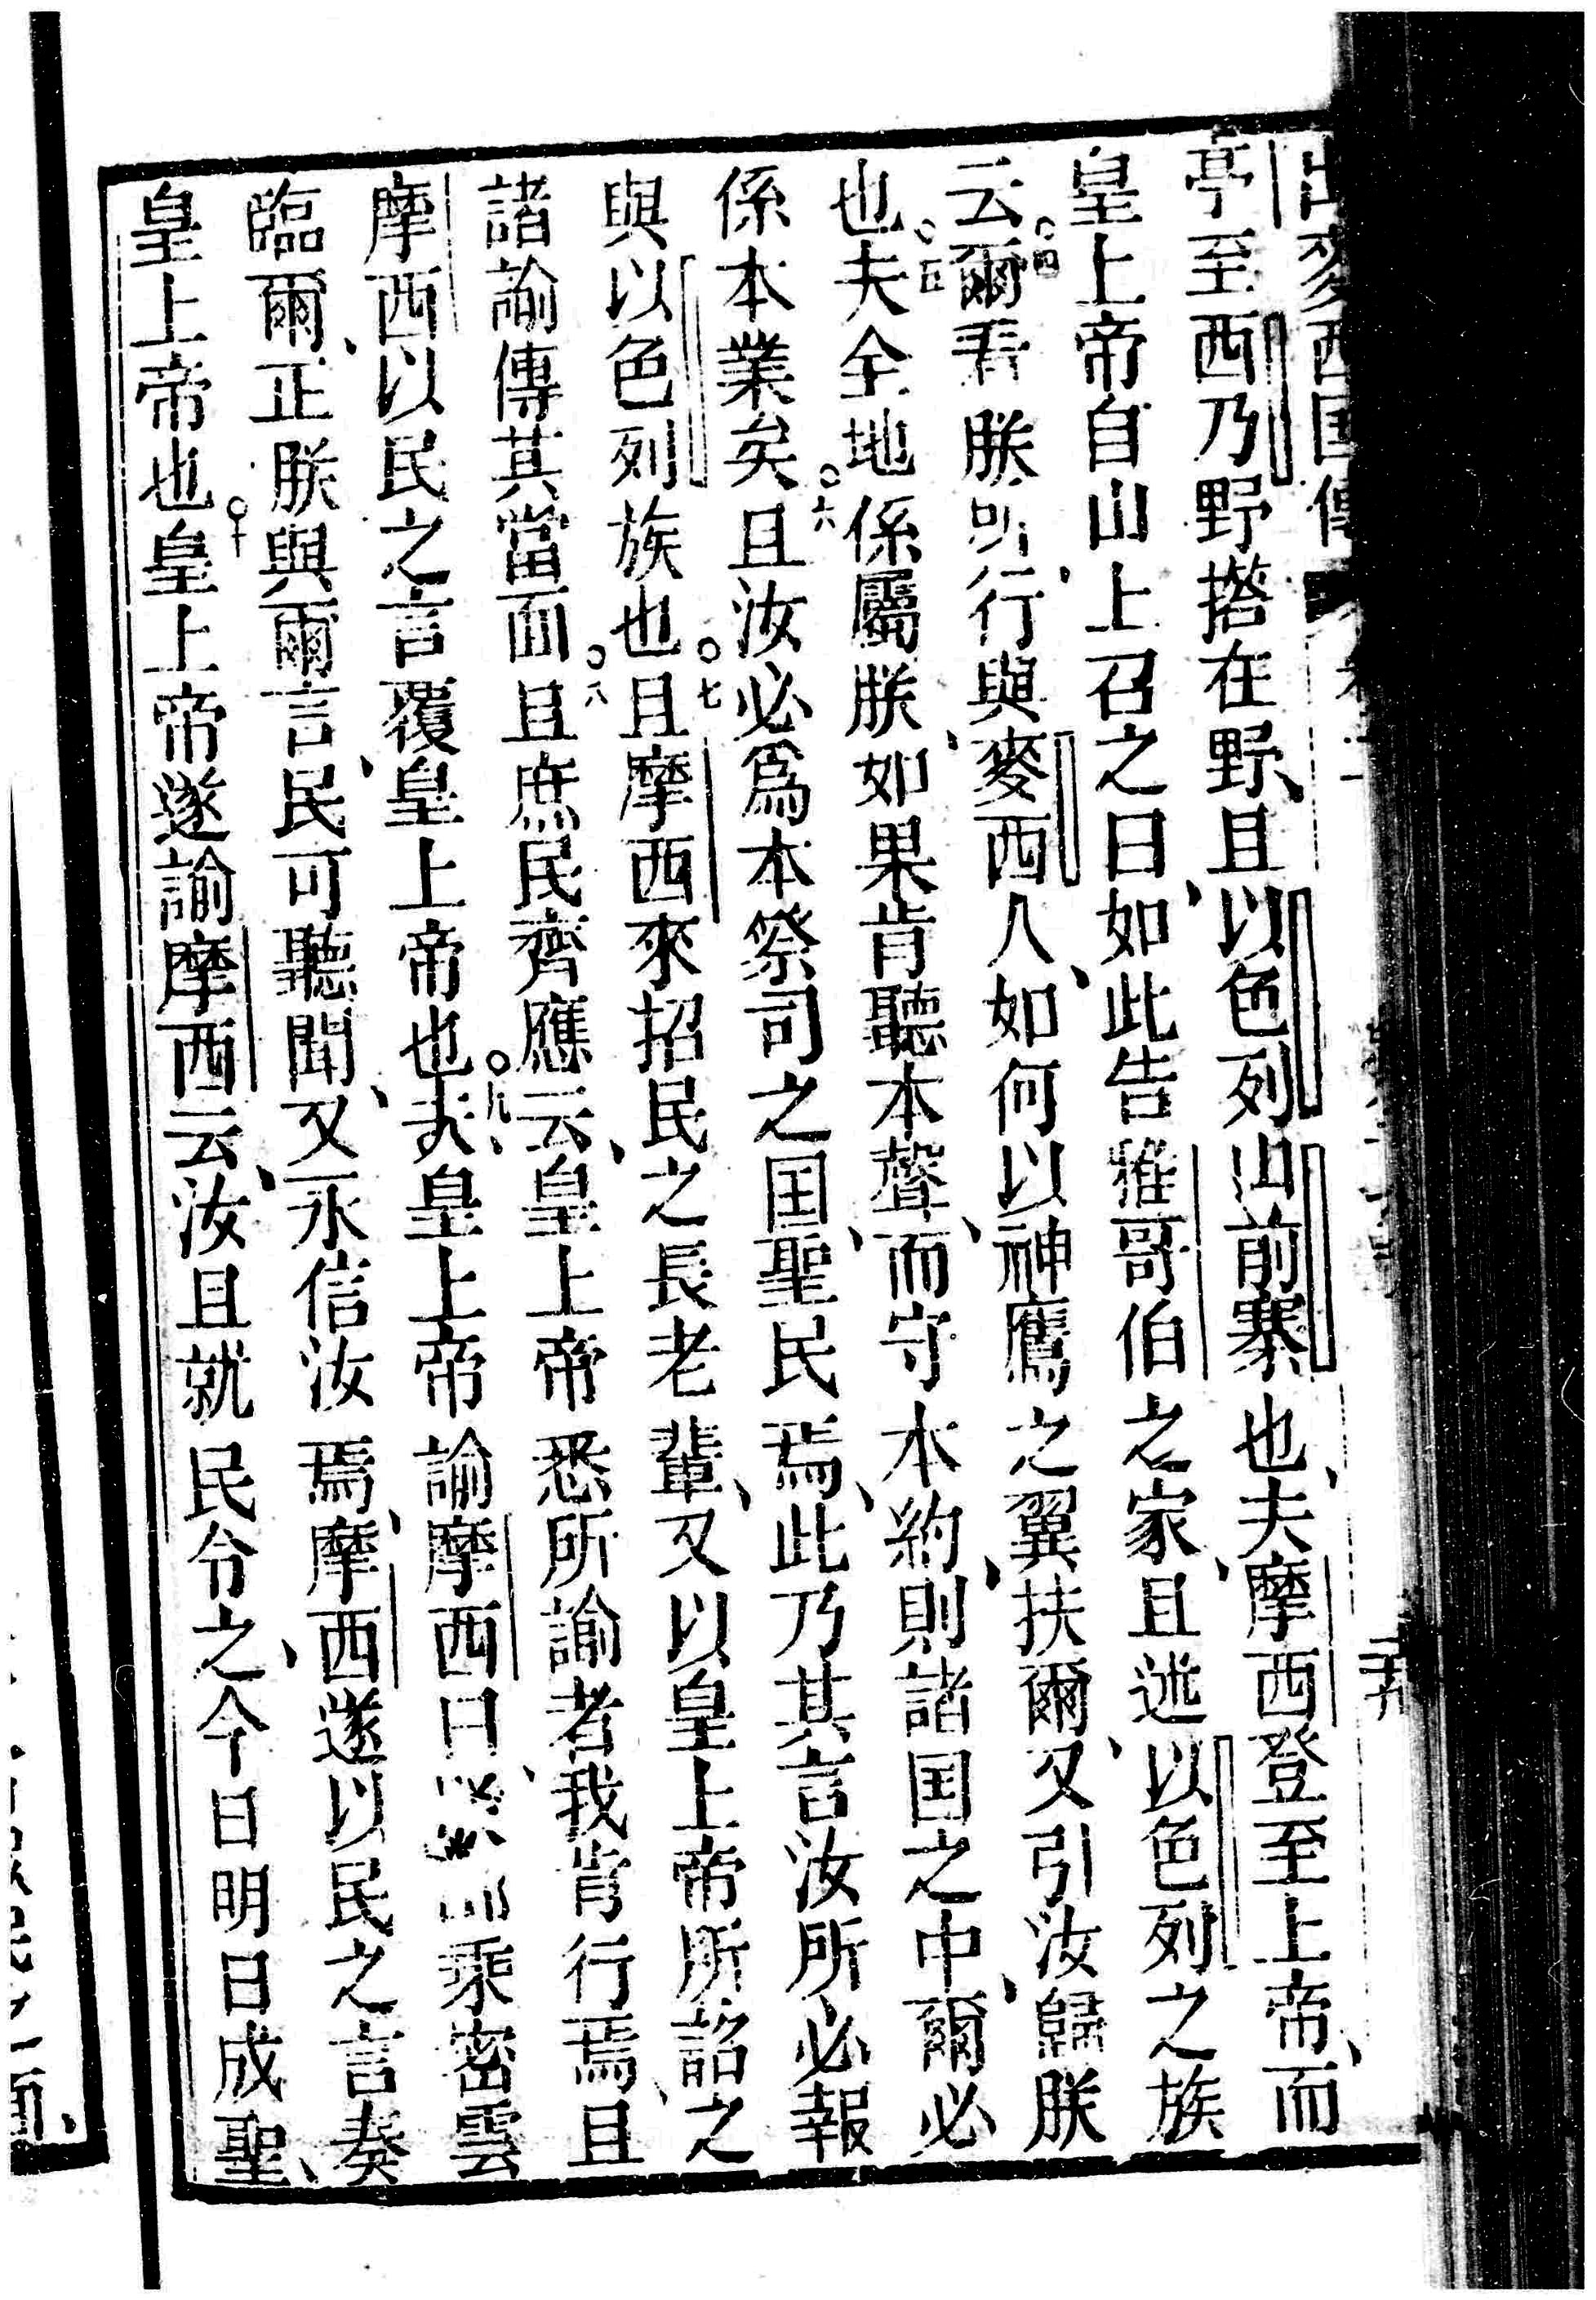 出麥西国傳
亭至西乃野搭在野、且以色列山前寨也、夫摩西登至上帝、而
皇上帝自山上召之曰、如此告雅哥伯之家、且述以色列之族
云、○四爾看朕所行與麥西人、如何以神鷹之翼扶爾、又引汝歸朕
也、○五夫全地係屬朕、如果肯聽本聲、而守本約、則諸国之中、爾必
係本業矣、○六且汝必為本祭司之国、聖民焉、此乃其言汝所必報
與以色列族也、○七且摩西來招民之長老輩、又以皇上帝所詔之
諸諭傳其當面、○八且庶民齊應云、皇上帝悉所諭者我肯行焉、且
摩西以民之言覆皇上帝也、○九夫皇上帝諭摩西曰、乘密雲
臨爾、正朕與爾言、民可聽聞、又永信汝焉、摩西遂以民之言奏
皇上帝也、○十皇上帝遂諭摩西云、汝且就民令之、今日明日成聖、